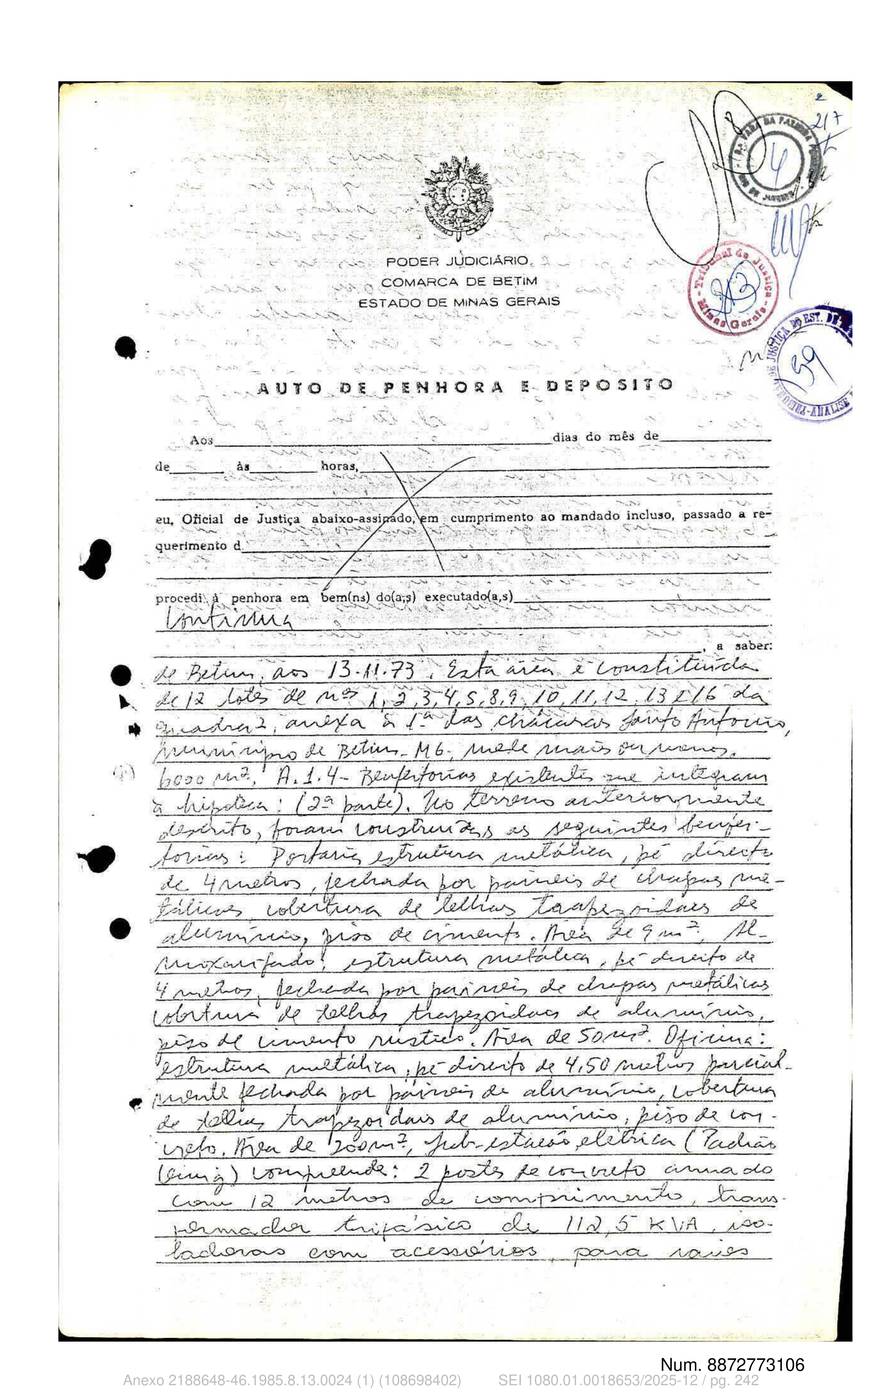 2
217
4
Tribunal de Justiça
Minas Gerais
213
59
PODER JUDICIÁRIO
COMARCA DE BETIM
ESTADO DE MINAS GERAIS
AUTO DE PENHORA E DEPOSITO
Aos dias do mês de
de às horas,
eu, Oficial de Justiça abaixo-assinado, em cumprimento ao mandado incluso, passado a re-
querimento d
procedi à penhora em bem(ns) do(a,s) executado(a,s)
Continua
, a saber:
de Betim, aos 13.11.73. Esta área é constituída
de 12 lotes de nºs 1, 2, 3, 4, 5, 8, 9, 10, 11, 12, 13 e 16 da
quadra 2, anexa à 1ª das chácaras Santo Antonio,
município de Betim-MG, mede mais ou menos
6000 m². A.1.4- Benfeitorias existentes que integram
a hipoteca: (2ª parte). No terreno anteriormente
descrito, foram construídas as seguintes benfei-
torias: Portaria, estrutura metálica, pé direito
de 4 metros, fechada por paineis de chapas me-
tálicas, cobertura de telhas trapezoidaes de
alumínio, piso de cimento. Área de 9 m². Al-
moxarifado: estrutura metálica, pé direito de
4 metros, fechada por paineis de chapas metálicas
cobertura de telhas trapezoidaes de alumínio,
piso de cimento rústico. Área de 50 m². Oficina:
estrutura metálica, pé direito de 4,50 metros parcial-
mente fechada por paineis de alumínio, cobertura
de telhas trapezoidais de alumínio, piso de con-
creto. Área de 200 m², sub-estação elétrica (Padrão
Cemig) compreende: 2 postes de concreto armado
com 12 metros de comprimento, trans-
formador trifásico de 112,5 KVA, iso-
ladores com acessórios, para raios
Num. 8872773106
Anexo 2188648-46.1985.8.13.0024 (1) (108698402) SEI 1080.01.0018653/2025-12 / pg. 242